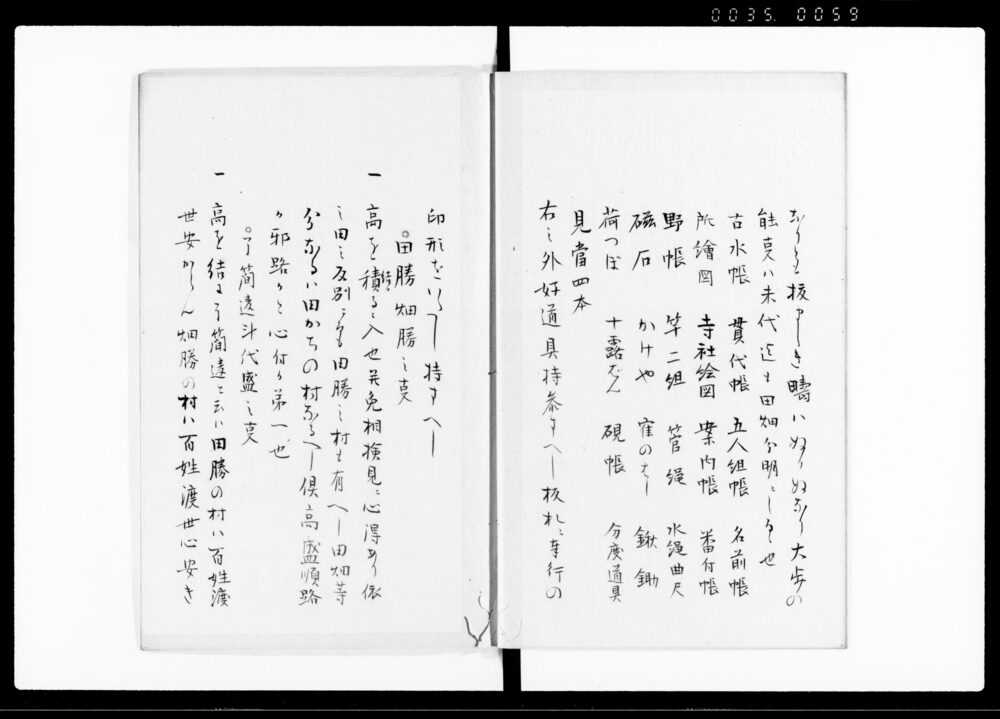 0035. 0059
なりとも抜申へき疇ハぬり〳〵なり大歩の
能莫ハ末代迄も田畑分明ニしる也
古水帳 貫代帳 五人組帳 名前帳
所繪図 寺社絵図 案内帳 番付帳
野帳 竿二組 管縄 水縄曲尺
磁石 かけや 窪のはし 鍬鋤
荷つぼ 十露ばん 硯帳 分度道具
見當四本
右之外好道具持参すへし板札ニ奉行の
印形をいたし持すへし
田勝畑勝之莫
一 高を積結るニ入也并免相検見ニ心得あり依
之田之反別ニても田勝之村も有へし田畑等
分なるハ田かちの村なるへし倶高盛順路
か邪路かと心付か第一也
了簡違斗代盛之莫
一 高を結ふ了簡違と云ハ田勝の村ハ百姓渡
世安からん畑勝の村ハ百姓渡世心安き